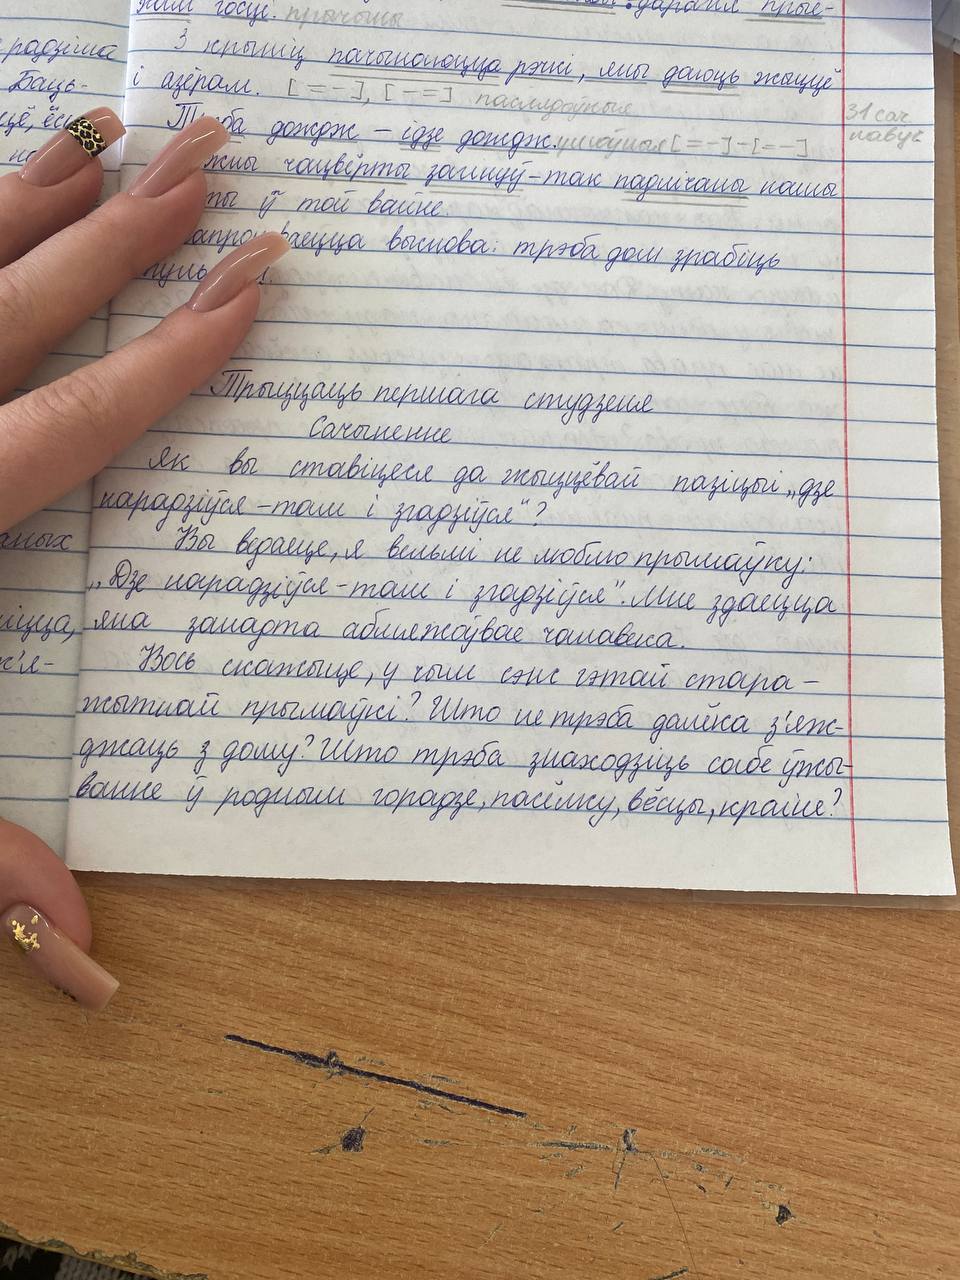 госце. прычыны
З крыніц пачынаюцца рэкі, яны даюць жыццё
і азёрам. [=-], [-=] паслядоўныя
дождж – ідзе дождж. умоўныя [=-]-[=-]
чацвёрты загінуў – так падлічаны нашы
ў той вайне.
выснова: трэба дом зрабіць
31 сач
навук
радзіма
Баць-
Трыццаць першага студзеня
Сачыненне
Як вы ставіцеся да жыццёвай пазіцыі „дзе
нарадзіўся – там і згадзіўся"?
Вы ведаеце, я вельмі не люблю прымаўку:
„Дзе нарадзіўся – там і згадзіўся". Мне здаецца
яна занадта абмяжоўвае чалавека.
Вось скажыце, у чым сэнс гэтай стара-
жытнай прымаўкі? Што не трэба далёка з'яж-
джаць з дому? Што трэба знаходзіць сабе ўжы-
ванне ў родным горадзе, пасёлку, вёсцы, краіне?